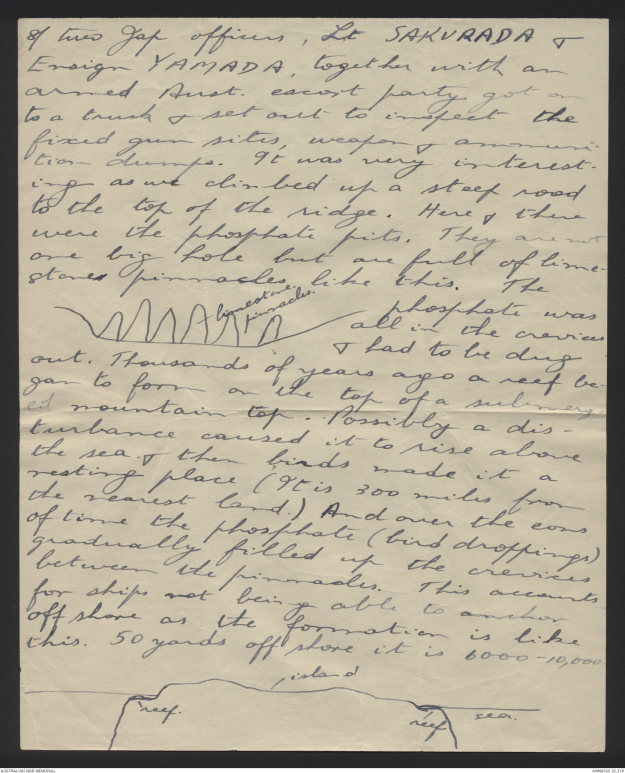 8/ two Jap officers, Lt SAKURADA &
Ensign YAMADA, together with an
armed Aust. escort party got on
to a truck & set out to inspect the
fixed gun sites, weapon & ammuni-
tion dumps. It was very interest-
ing as we climbed up a steep road
to the top of the ridge. Here & there
were the phosphate pits. They are not
one big hole but are full of lime-
stone pinnacles like this. The
limestone
pinnacles.
phosphate was
all in the crevices
& had to be dug
out. Thousands of years ago a reef be-
gan to form on the top of a submerg-
ed mountain top. Possibly a dis-
turbance caused it to rise above
the sea & then birds made it a
resting place (It is 300 miles from
the nearest land.) And over the eons
of time the phosphate (bird droppings)
gradually filled up the crevices
between the pinnacles. This accounts
for ships not being able to anchor
off shore as the formation is like
this. 50 yards off shore it is 6000-10,000
island
reef.
reef
sea.
AUSTRALIAN WAR MEMORIAL